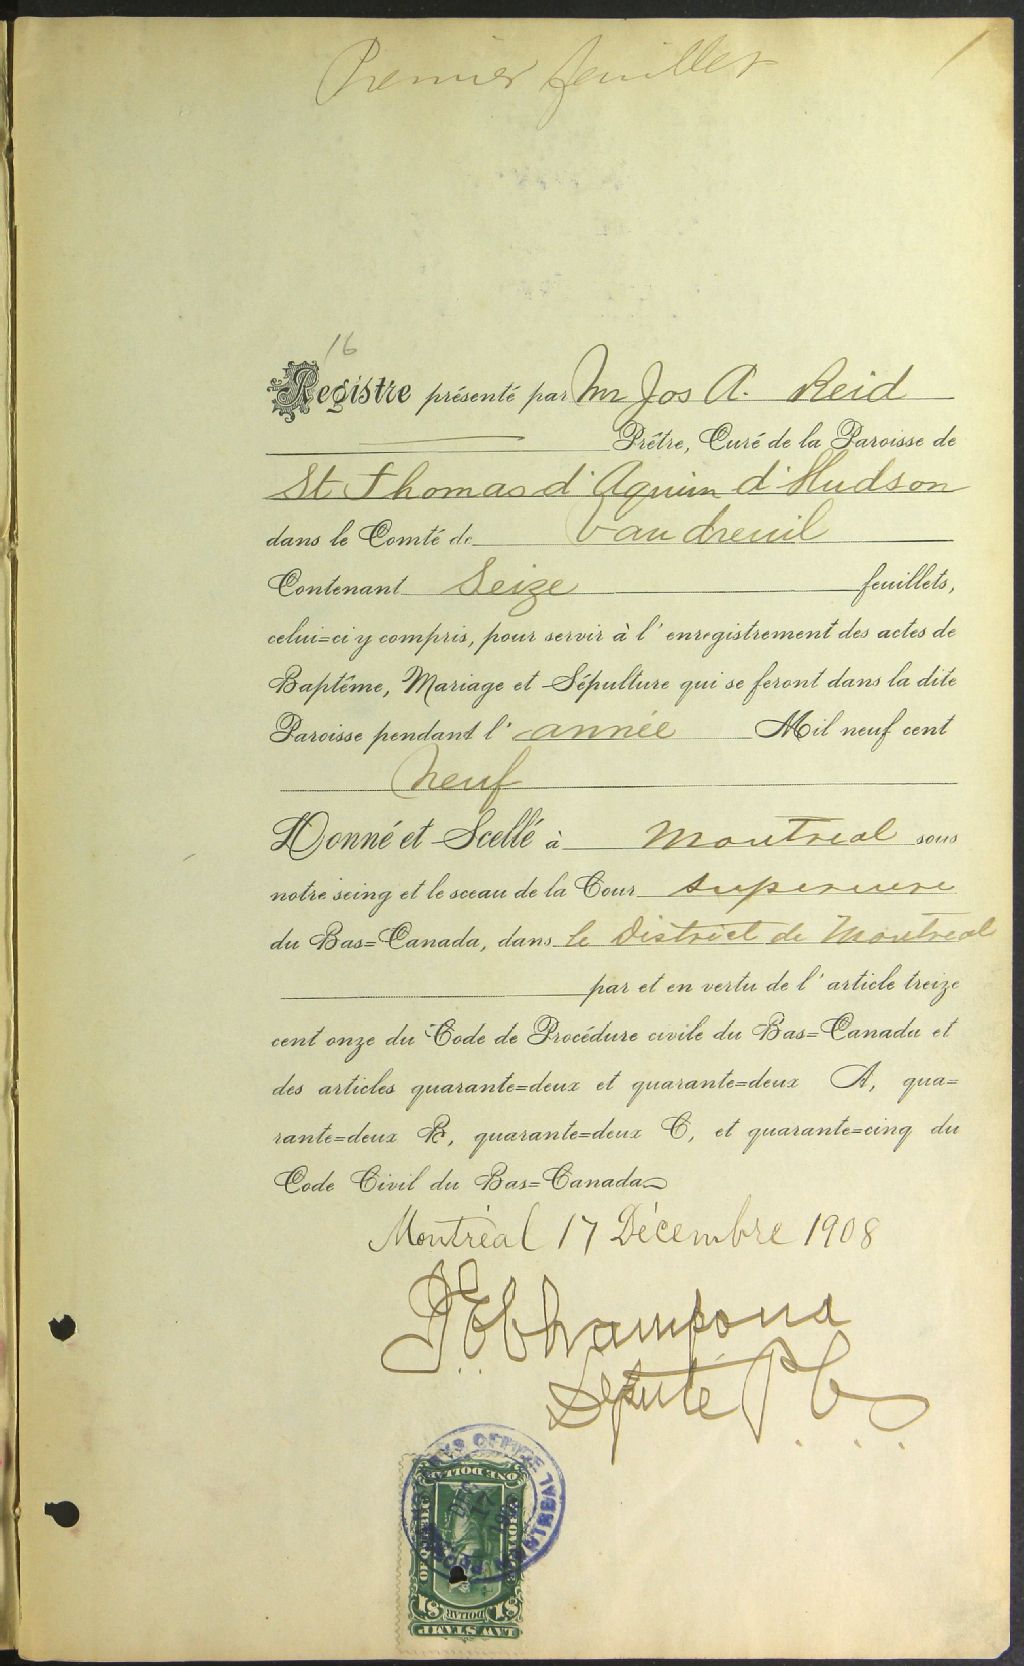 Premier feuillet
1
16
Registre présenté par Mr Jos A. Reid
Prêtre, Curé de la Paroisse de
St Thomas d'Aquin d'Hudson
dans le Comté de Vaudreuil
Contenant Seize feuillets,
celui=ci y compris, pour servir à l'enregistrement des actes de
Baptême, Mariage et Sépulture qui se feront dans la dite
Paroisse pendant l'année Mil neuf cent
neuf
Donné et Scellé à Montreal sous
notre seing et le sceau de la Cour Superieure
du Bas=Canada, dans le District de Montreal
par et en vertu de l'article treize
cent onze du Code de Procédure civile du Bas=Canada et
des articles quarante=deux et quarante=deux A, qua=
rante=deux B, quarante=deux C, et quarante=cinq du
Code Civil du Bas=Canada
Montréal 17 Décembre 1908
Député P C
OFFICE MONTREAL
DEC 17
ONE DOLLAR
PROVINCE OF QUEBEC
$1 DOLLAR $1
LAW STAMP